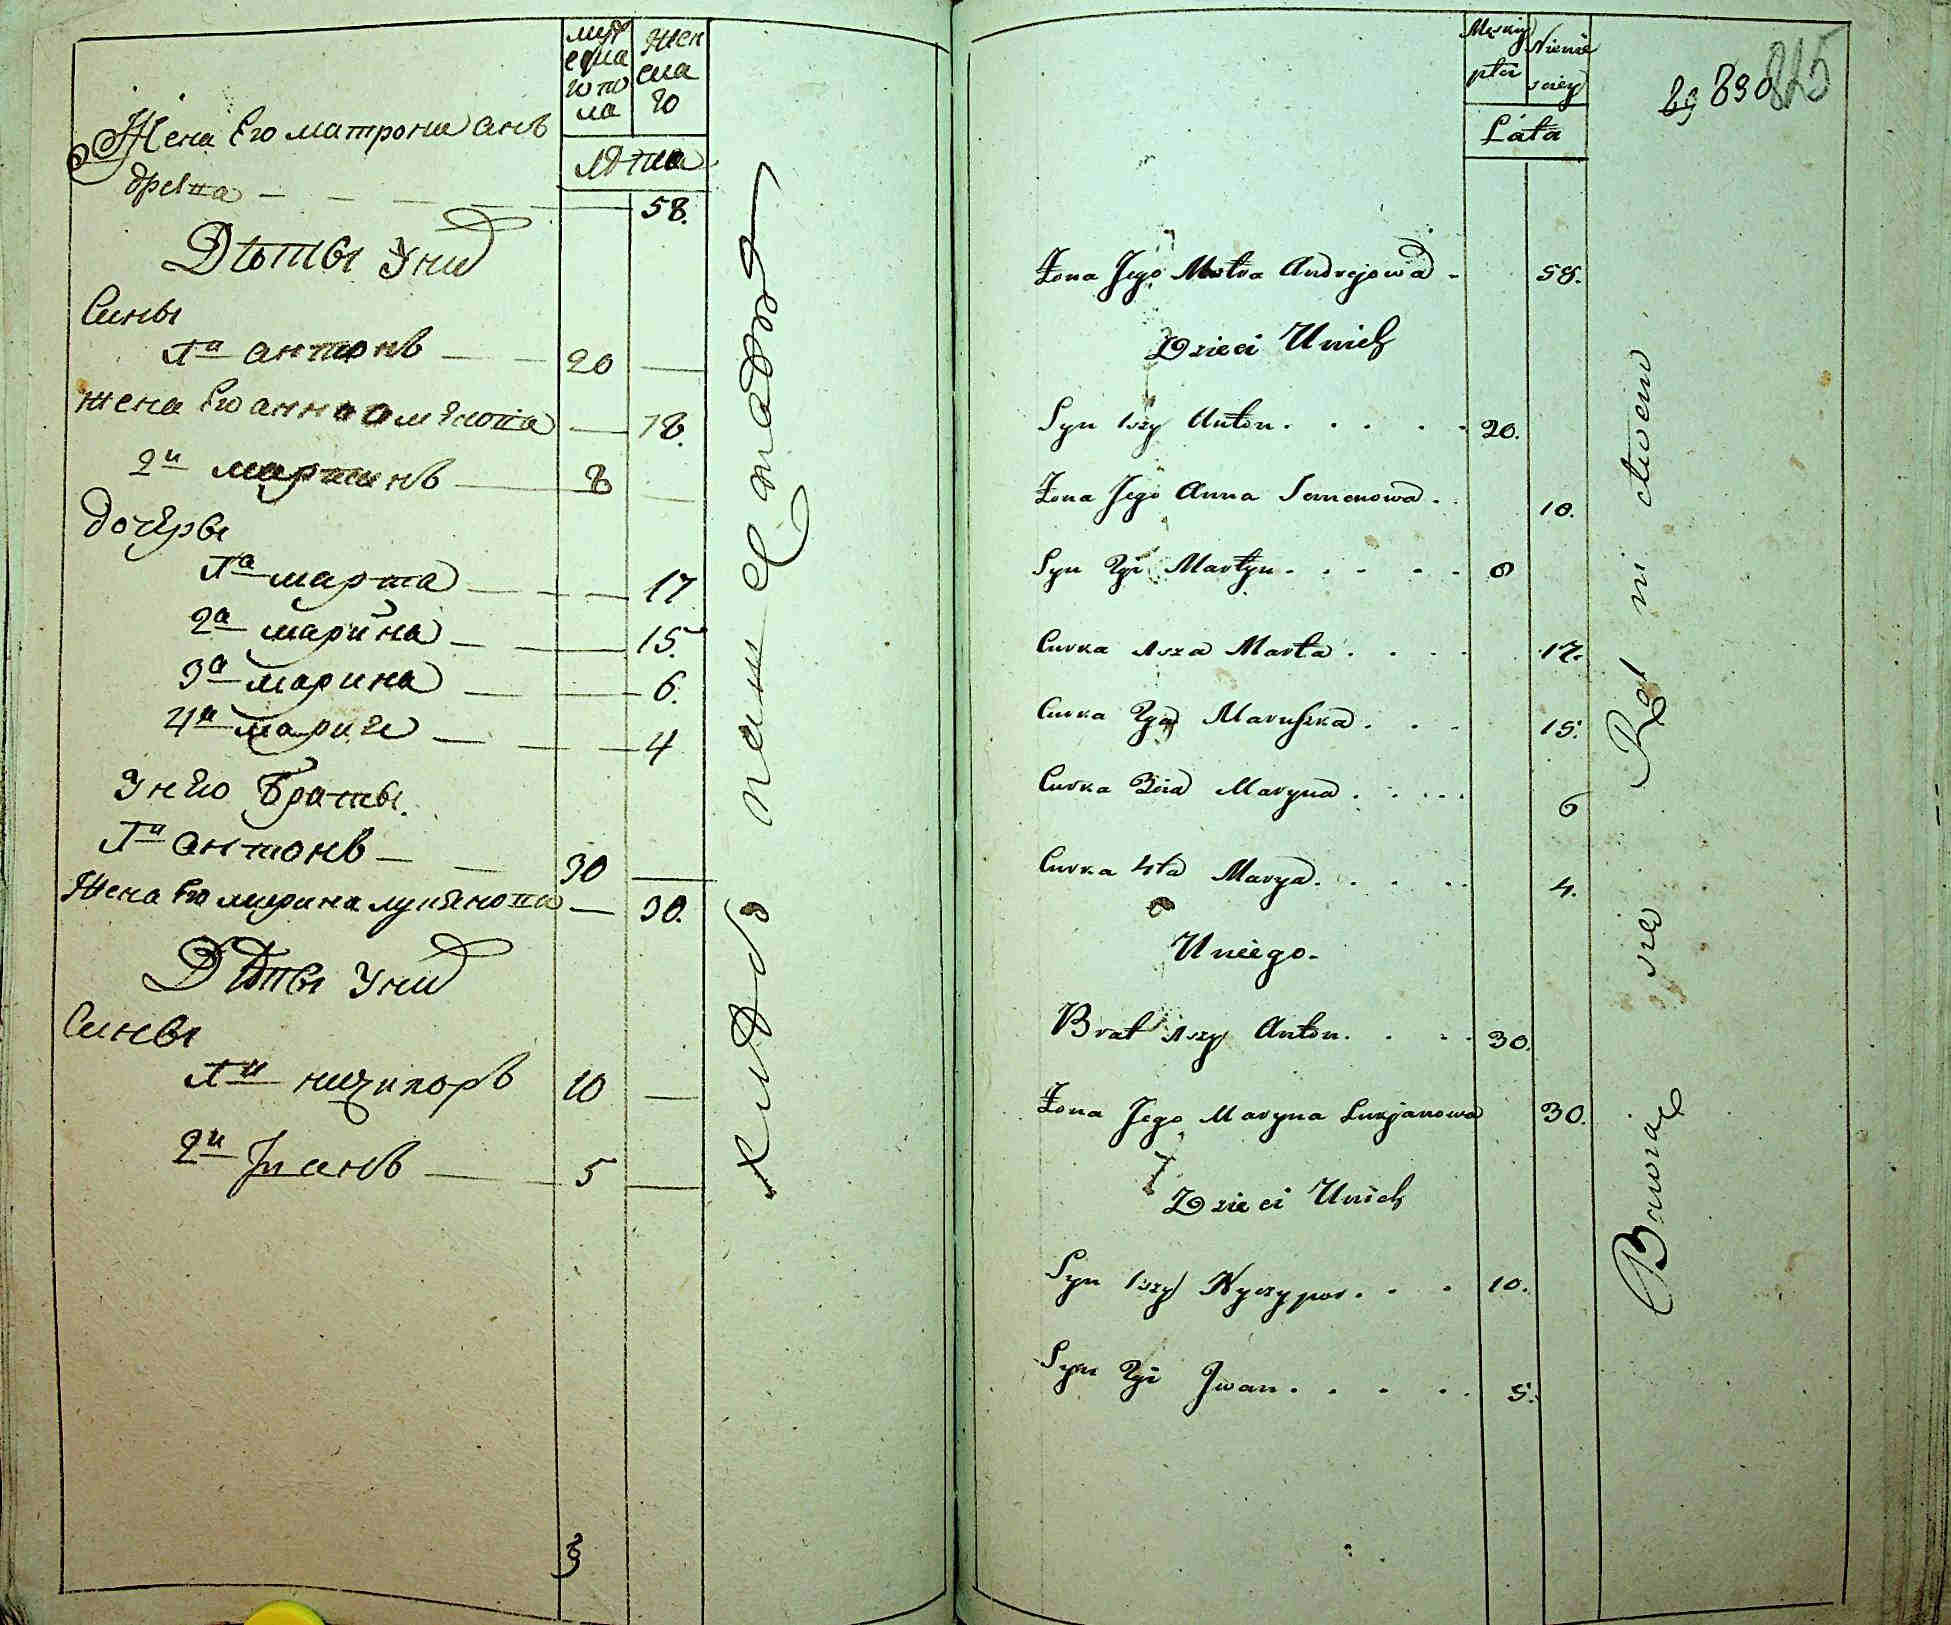 муж Жен
ска
го по го
ла
лѣта
Жена Его матрона анъ
дреева 58.
Дѣты Уних
Сыны
1й антонъ 20
жена Его анна семенова 18.
2й мартинъ 8
дочеры
1а марта 17
2а марина 15.
3а марина 6.
4а мария 4
Унего Браты.
1й антонъ 30
Жена Его марина лукянова 30.
Дѣты Уних
Сыны
1й ничипоръ 10
2й Іванъ 5
Męzkiey Niewie
płci sciey
Lata
89 890 815
Żona Jego Motra Andrejowa 58.
Dzieci Unich
Syn 1szy Anton 20.
Żona Jego Anna Semenowa 18.
Syn 2gi Martyn 8
Curka 1sza Marta 17.
Curka 2ga Maruszka 15.
Curka 3cia Maryna 6
Curka 4ta Marya 4.
Uniego.
Brat 1szy Anton 30.
Żona Jego Maryna Lukjanowa 30.
Dzieci Unich
Syn 1szy Nyczypor 10.
Syn 2gi Jwan 5.
Bawią się Rol ni ctwem